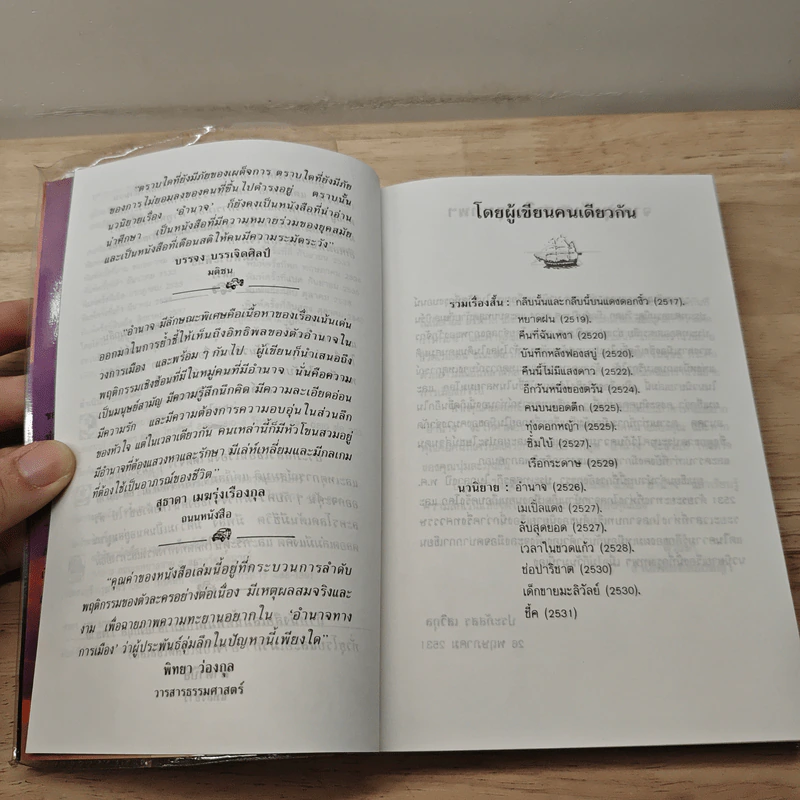 "ตราบใดที่ยังมีภัยของเผด็จการ ตราบใดที่ยังมีภัย
ของการไม่ยอมลงของคนที่ขึ้นไปดำรงอยู่ ตราบนั้น
นวนิยายเรื่อง 'อำนาจ' ก็ยังคงเป็นหนังสือที่น่าอ่าน
น่าศึกษา เป็นหนังสือที่มีความหมายร่วมของยุคสมัย
และเป็นหนังสือที่เตือนสติให้คนมีความระมัดระวัง"
บรรจง บรรเจิดศิลป์
มติชน
"อำนาจ มีลักษณะพิเศษคือเนื้อหาของเรื่องเน้นเด่น
ออกมาในการย้ำชี้ให้เห็นถึงอิทธิพลของตัวอำนาจใน
วงการเมือง และพร้อม ๆ กันไป ผู้เขียนก็นำเสนอถึง
พฤติกรรมเชิงซ้อนที่มีในหมู่คนที่มีอำนาจ นั่นคือความ
เป็นมนุษย์สามัญ มีความรู้สึกนึกคิด มีความละเอียดอ่อน
มีความรัก และมีความต้องการความอบอุ่นในส่วนลึก
ของหัวใจ แต่ในเวลาเดียวกัน คนเหล่านี้ก็มีหัวโขนสวมอยู่
มีอำนาจที่ต้องแสวงหาและรักษา มีเล่ห์เหลี่ยมและมีกลเกม
ที่ต้องใช้เป็นอาภรณ์ของชีวิต"
สุธาดา เมฆรุ่งเรืองกุล
ถนนหนังสือ
"คุณค่าของหนังสือเล่มนี้อยู่ที่กระบวนการลำดับ
พฤติกรรมของตัวละครอย่างต่อเนื่อง มีเหตุผลสมจริงและ
งาม เพื่อฉายภาพความทะยานอยากใน 'อำนาจทาง
การเมือง' ว่าผู้ประพันธ์ลุ่มลึกในปัญหานี้เพียงใด"
พิทยา ว่องกุล
วารสารธรรมศาสตร์
โดยผู้เขียนคนเดียวกัน
รวมเรื่องสั้น : กลีบนั้นและกลีบนี้บนแดงดอกงิ้ว (2517).
หยาดฝน (2519).
คืนที่ฉันเหงา (2520)
บันทึกหลังฟองสบู่ (2520).
คืนนี้ไม่มีแสงดาว (2522).
อีกวันหนึ่งของตรัน (2524).
คนบนยอดตึก (2525).
ทุ่งดอกหญ้า (2525).
ซิ้มใบ้ (2527).
เรือกระดาษ (2529)
นวนิยาย : อำนาจ (2526).
เมเปิ้ลแดง (2527).
ลับสุดยอด (2527).
เวลาในขวดแก้ว (2528).
ช่อปาริชาต (2530)
เด็กชายมะลิวัลย์ (2530).
ชี้ค (2531)